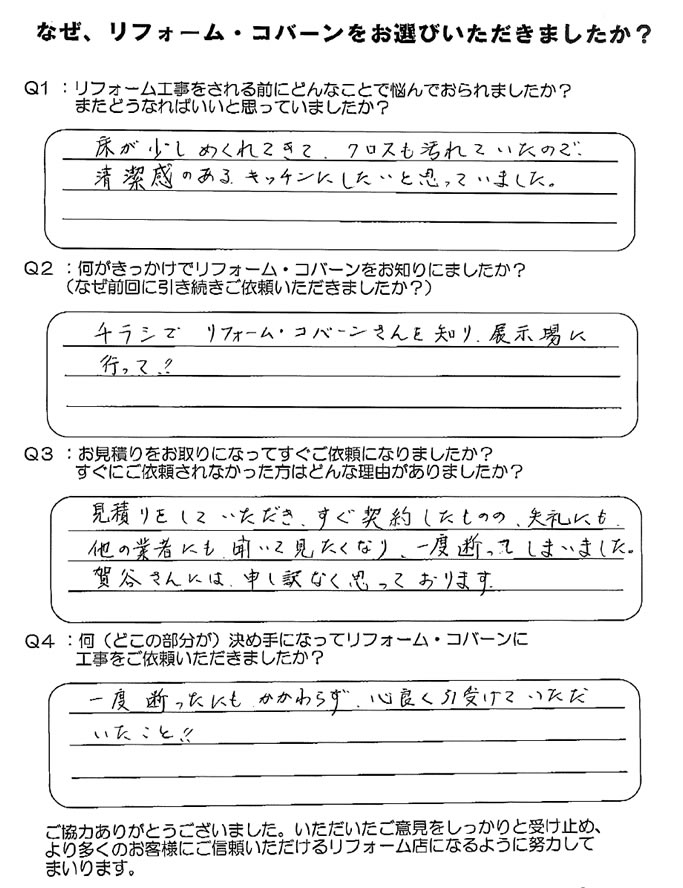 なぜ、リフォーム・コバーンをお選びいただきましたか？
Q1 ：リフォーム工事をされる前にどんなことで悩んでおられましたか？
またどうなればいいと思っていましたか？
床が少しめくれてきて、クロスも汚れていたので、
清潔感のあるキッチンにしたいと思っていました。
Q2 ：何がきっかけでリフォーム・コバーンをお知りにましたか？
（なぜ前回に引き続きご依頼いただきましたか？）
チラシで リフォーム・コバーンさんを知り、展示場に
行って!!
Q3 ：お見積りをお取りになってすぐご依頼になりましたか？
すぐにご依頼されなかった方はどんな理由がありましたか？
見積りをしていただき、すぐ契約したものの、失礼にも、
他の業者にも聞いて見たくなり、一度断ってしまいました。
賀谷さんには、申し訳なく思っております。
Q4 ：何（どこの部分が）決め手になってリフォーム・コバーンに
工事をご依頼いただきましたか？
一度断ったにもかかわらず、心良く引受けていただ
いたこと!!
ご協力ありがとうございました。いただいたご意見をしっかりと受け止め、
より多くのお客様にご信頼いただけるリフォーム店になるように努力して
まいります。